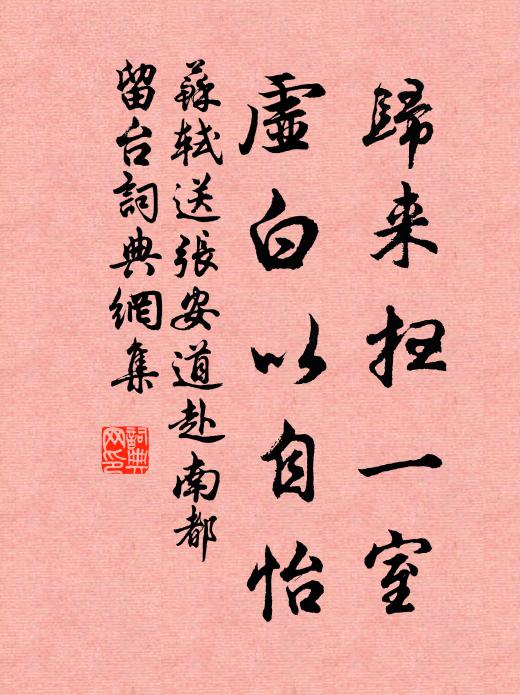 歸来掃一室
虛白以自怡
蘇軾送張安道赴南都
留台詞典網集
詞典
网印